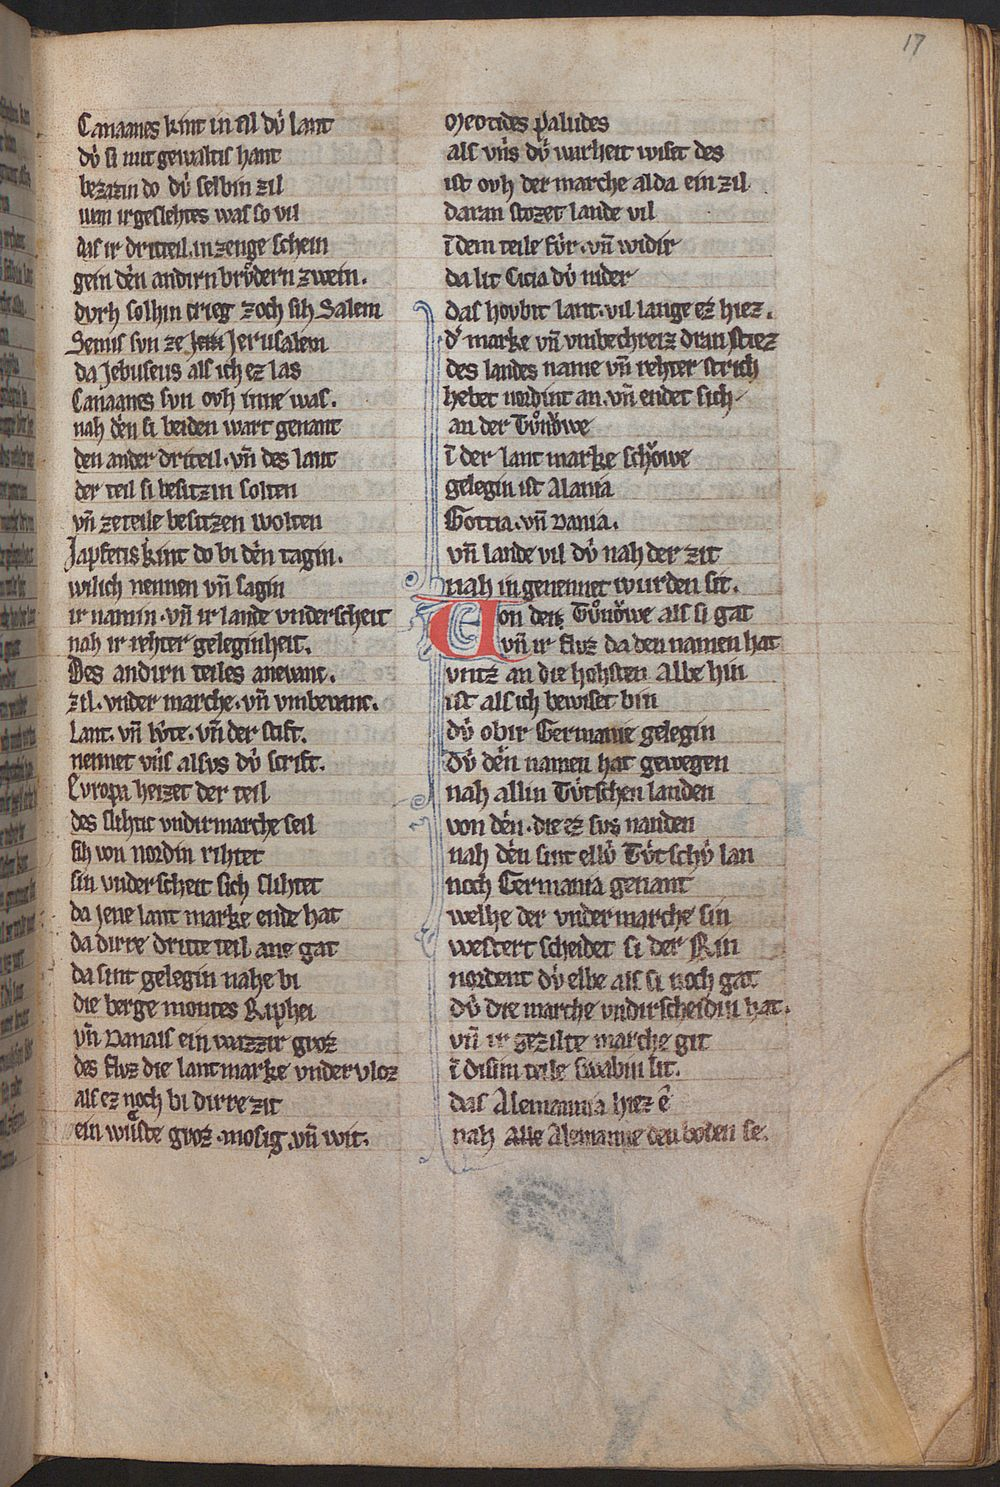 17
Canaanes kint in al dv̍ lant
dv̍ si mit gewaltis hant
bezazin do dv̍ selbin zil
wan ir geslehtes was so vil
das ir dritteil in zenge schein
gein dēn andirn brv̊dern zwein.
dvrh solhin crieg zoch sih Salem
Semis svn ze Jeru Jerusalem
da Jebuseus als ich ez las
Canaanes svn ovh inne was.
nah dēn si beiden wart genant
den ander dritteil. vn̄ des lant
der teil si besitzin solten
vn̄ ze teile besitzen wolten
Japfetis kint do bi dēn tagin.
wilich nennen vn̄ sagin
ir namin. vn̄ ir lande vnderscheit
nah ir rehter geleginheit.
Des andirn teiles anevanc.
zil. vnder marche. vn̄ vmbevanc.
Lant. vn̄ lv̍te. vn̄ der stift.
nennet vn̍s alsvs dv̍ scrift.
Evropa heizet der teil
des slihtit vndirmarche seil
sih von nordin rihtet
sin vnderscheit sich slihtet
da jene lant marke ende hat
da dirre dritte teil ane gat
da sint gelegin nahe bi
die berge montes Riphei
vn̄ Danais ein wazzir groz
des flvz die lantmarke vnder vloz
als ez noch bi dirre zit
ein wůste groz. mosig. vn̄ wit.
Meotides paludes
als vn̍s dv̍ warheit wiset des
ist ovh der marche alda ein zil
daran stozet lande vil
ī dem teile fv̍r. vn̄ widir
da lit Cicia dv̍ nider
das hovbit lant. vil lange ez hiez.
d̍ marke vn̄ vmbechreiz dran stiez
des landes name vn̄ rehter strich
hebet nordint an. vn̄ endet sich
an der Tv̊nǒwe
ī der lant marke schǒwe
gelegin ist Alania
Gottia. vn̄ Dania.
vn̄ lande vil dv̍ nah der zit
nah in genennet wurden sit.
Von der Tv̊nǒwe als si gat
vn̄ ir flvz da den namen hat
vntz an die hohsten Albe hin
ist als ich bewiset bin
dv̍ obir Germanie gelegin
dv̍ dēn namen hat gewegen
nah allin Tv̍tschen landen
von dēn. die ez svs nanden
nah dēn sint ellv̍ Tv̍tschv̍ lan
noch Germania genant
welhe der vndermarche sin
westert scheidet si der Rin
nordent dv̍ elbe als si noch gat
dv̍ die marche vndirscheidin hat.
vn̄ ir gezilte marche git
ī disim teile swabin lit.
das Alemannia hiez ê
nah Alle Alemanne den boden se.